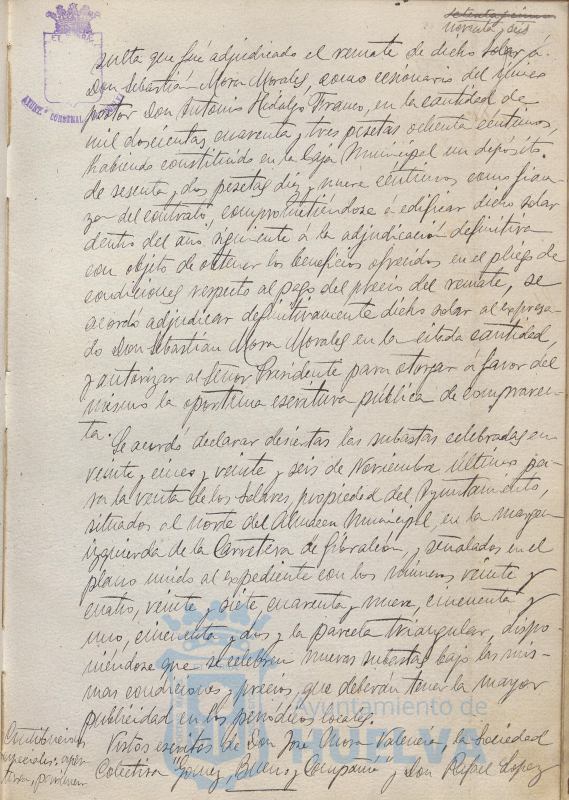 setenta y cinco
noventa y seis
sulta que fué adjudicado el remate de dicho solar á
Don Sebastián Mora Morales, como cesionario del único
postor Don Antonio Hidalgo Franco, en la cantidad de
mil doscientas cuarenta y tres pesetas ochenta céntimos,
habiendo constituido en la Caja Municipal un depósito
de sesenta y dos pesetas diez y nueve céntimos como fian-
za del contrato, comprometiéndose á edificar dicho solar
dentro del año siguiente á la adjudicación definitiva
con objeto de obtener los beneficios ofrecidos en el pliego de
condiciones respecto al pago del precio del remate, se
acordó adjudicar definitivamente dicho solar al expresa-
do Don Sebastián Mora Morales en la citada cantidad,
y autorizar al Señor Presidente para otorgar á favor del
mismo la oportuna escritura pública de compraven-
ta.
Se acordó declarar desiertas las subastas celebradas en
veinte y cinco y veinte y seis de Noviembre último pa-
ra la venta de los solares, propiedad del Ayuntamiento,
situados al norte del Almacen Municipal, en la margen
izquierda de la Carretera de Gibraleón, y señalados en el
plano unido al expediente con los números veinte y
cuatro, veinte y siete, cuarenta y nueve, cincuenta y
uno, cincuenta y dos y la parcela triangular, dispo-
niéndose que se celebren nuevas subastas bajo las mis-
mas condiciones y precios, que deberán tener la mayor
publicidad en los periódicos locales.
Vistos escritos de Don José Mora Valencia, la Sociedad
Colectiva "Gomez, Bueno y Compañía" y Don Rafael Lopez
Contribuciones
especiales, aper
Ayuntamiento de
HUELVA
AYUNT.º CONSTNAL